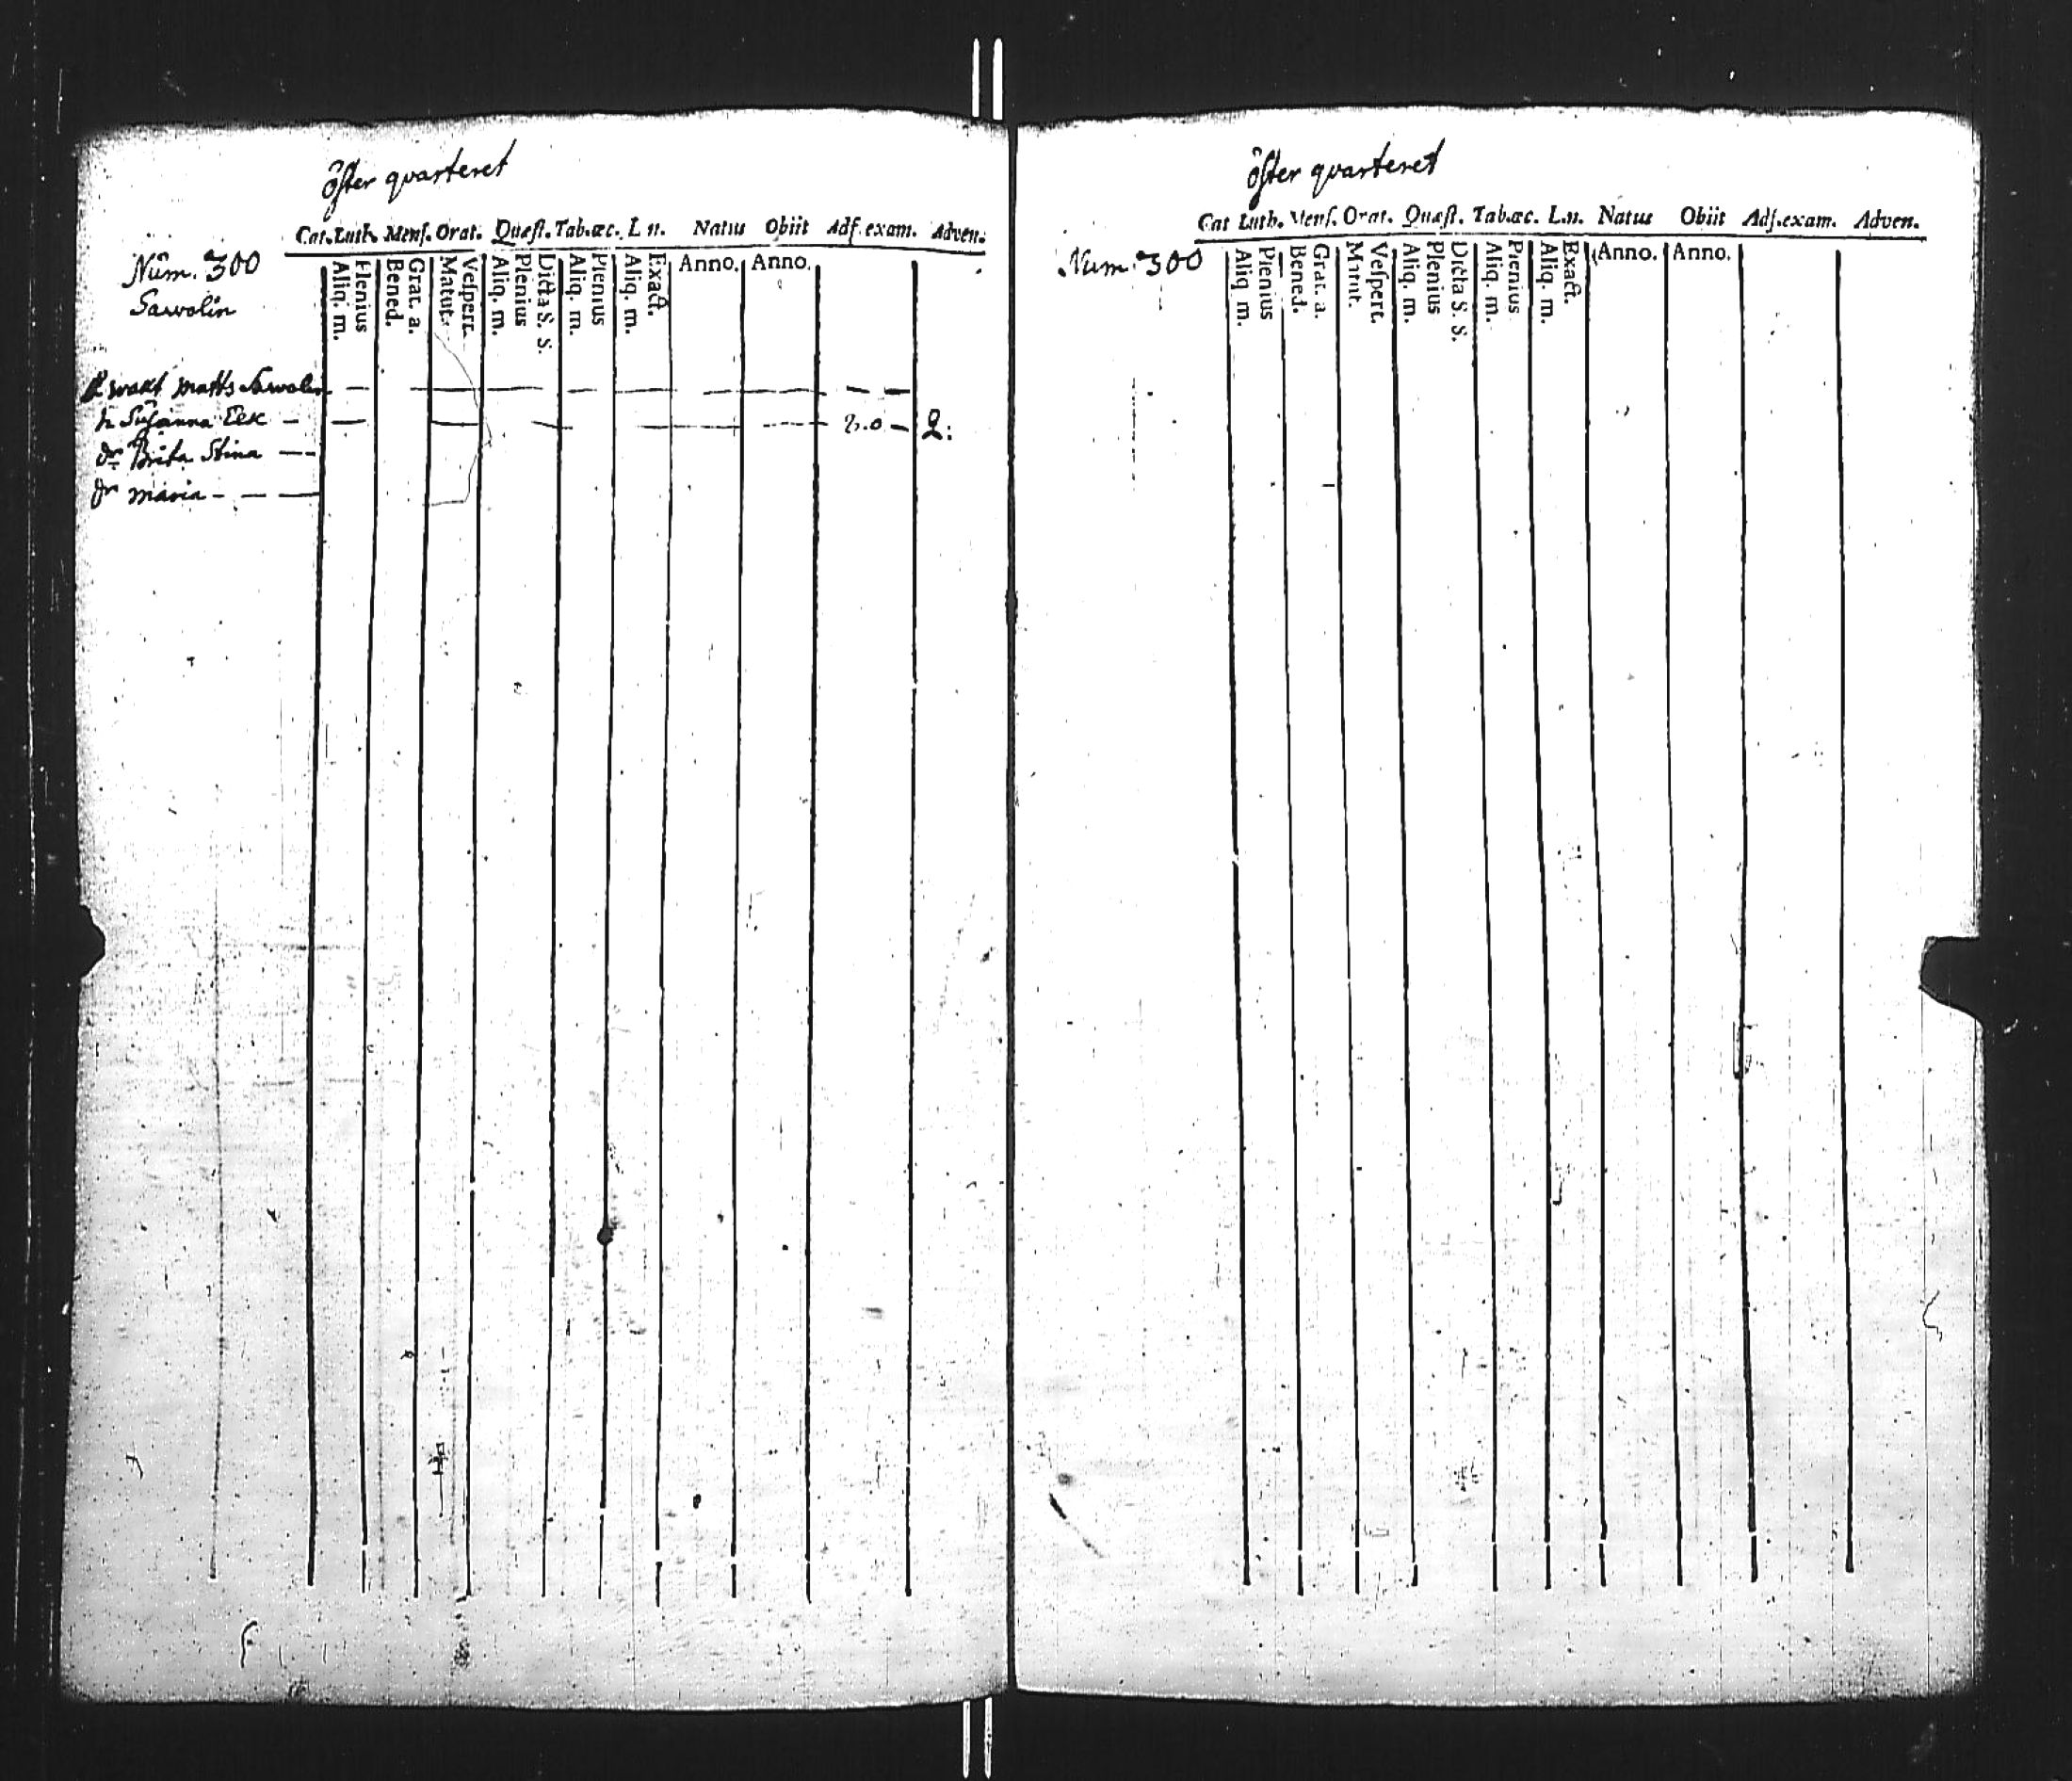 öster qvarteret
Cat. Luth. Mens. Orat. Quæst. Tab. œc. L. n. Natus Obiit Adf. exam. Adven.
Num. 300
Aliq. m. Plenius Bened. Grat. a. Matut. Vespert. Aliq. m. Plenius Dicta S. S. Aliq. m. Plenius Aliq. m. Exact. Anno. Anno.
Sawolin
wakt Matts Sawolin
h Susanna Eek 2.
dr Brita Stina
dr Maria
öster qvarteret
Cat Luth. Mens. Orat. Quæst. Tab. œc. L. n. Natus Obiit Adf. exam. Adven.
Num. 300
Aliq m. Plenius Bened. Grat. a. Matut. Vespert. Aliq. m. Plenius Dicta S. S. Aliq. m. Plenius Aliq. m. Exact. Anno. Anno.